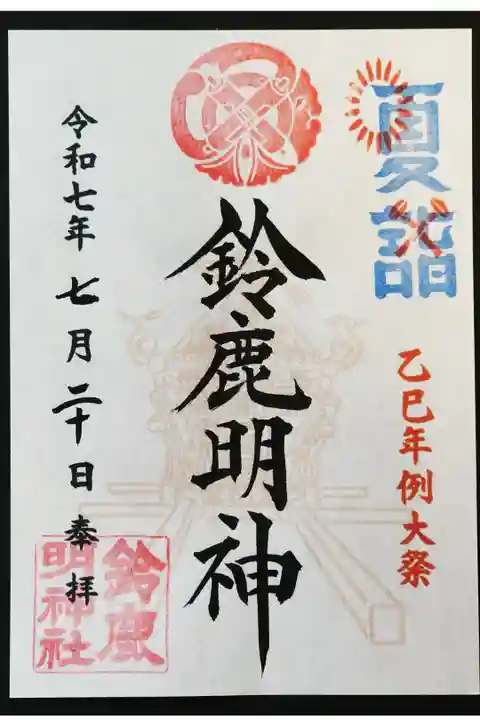 夏詣
乙巳年例大祭
鈴鹿明神
令和七年 七月二十日 奉拝
鈴鹿
明神社